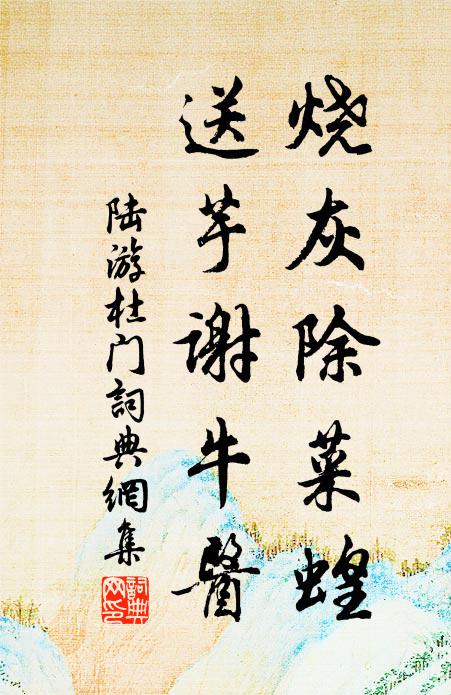 烧灰除菜蝗
送芋谢牛醫
陆游杜门詞典網集
詞典网印